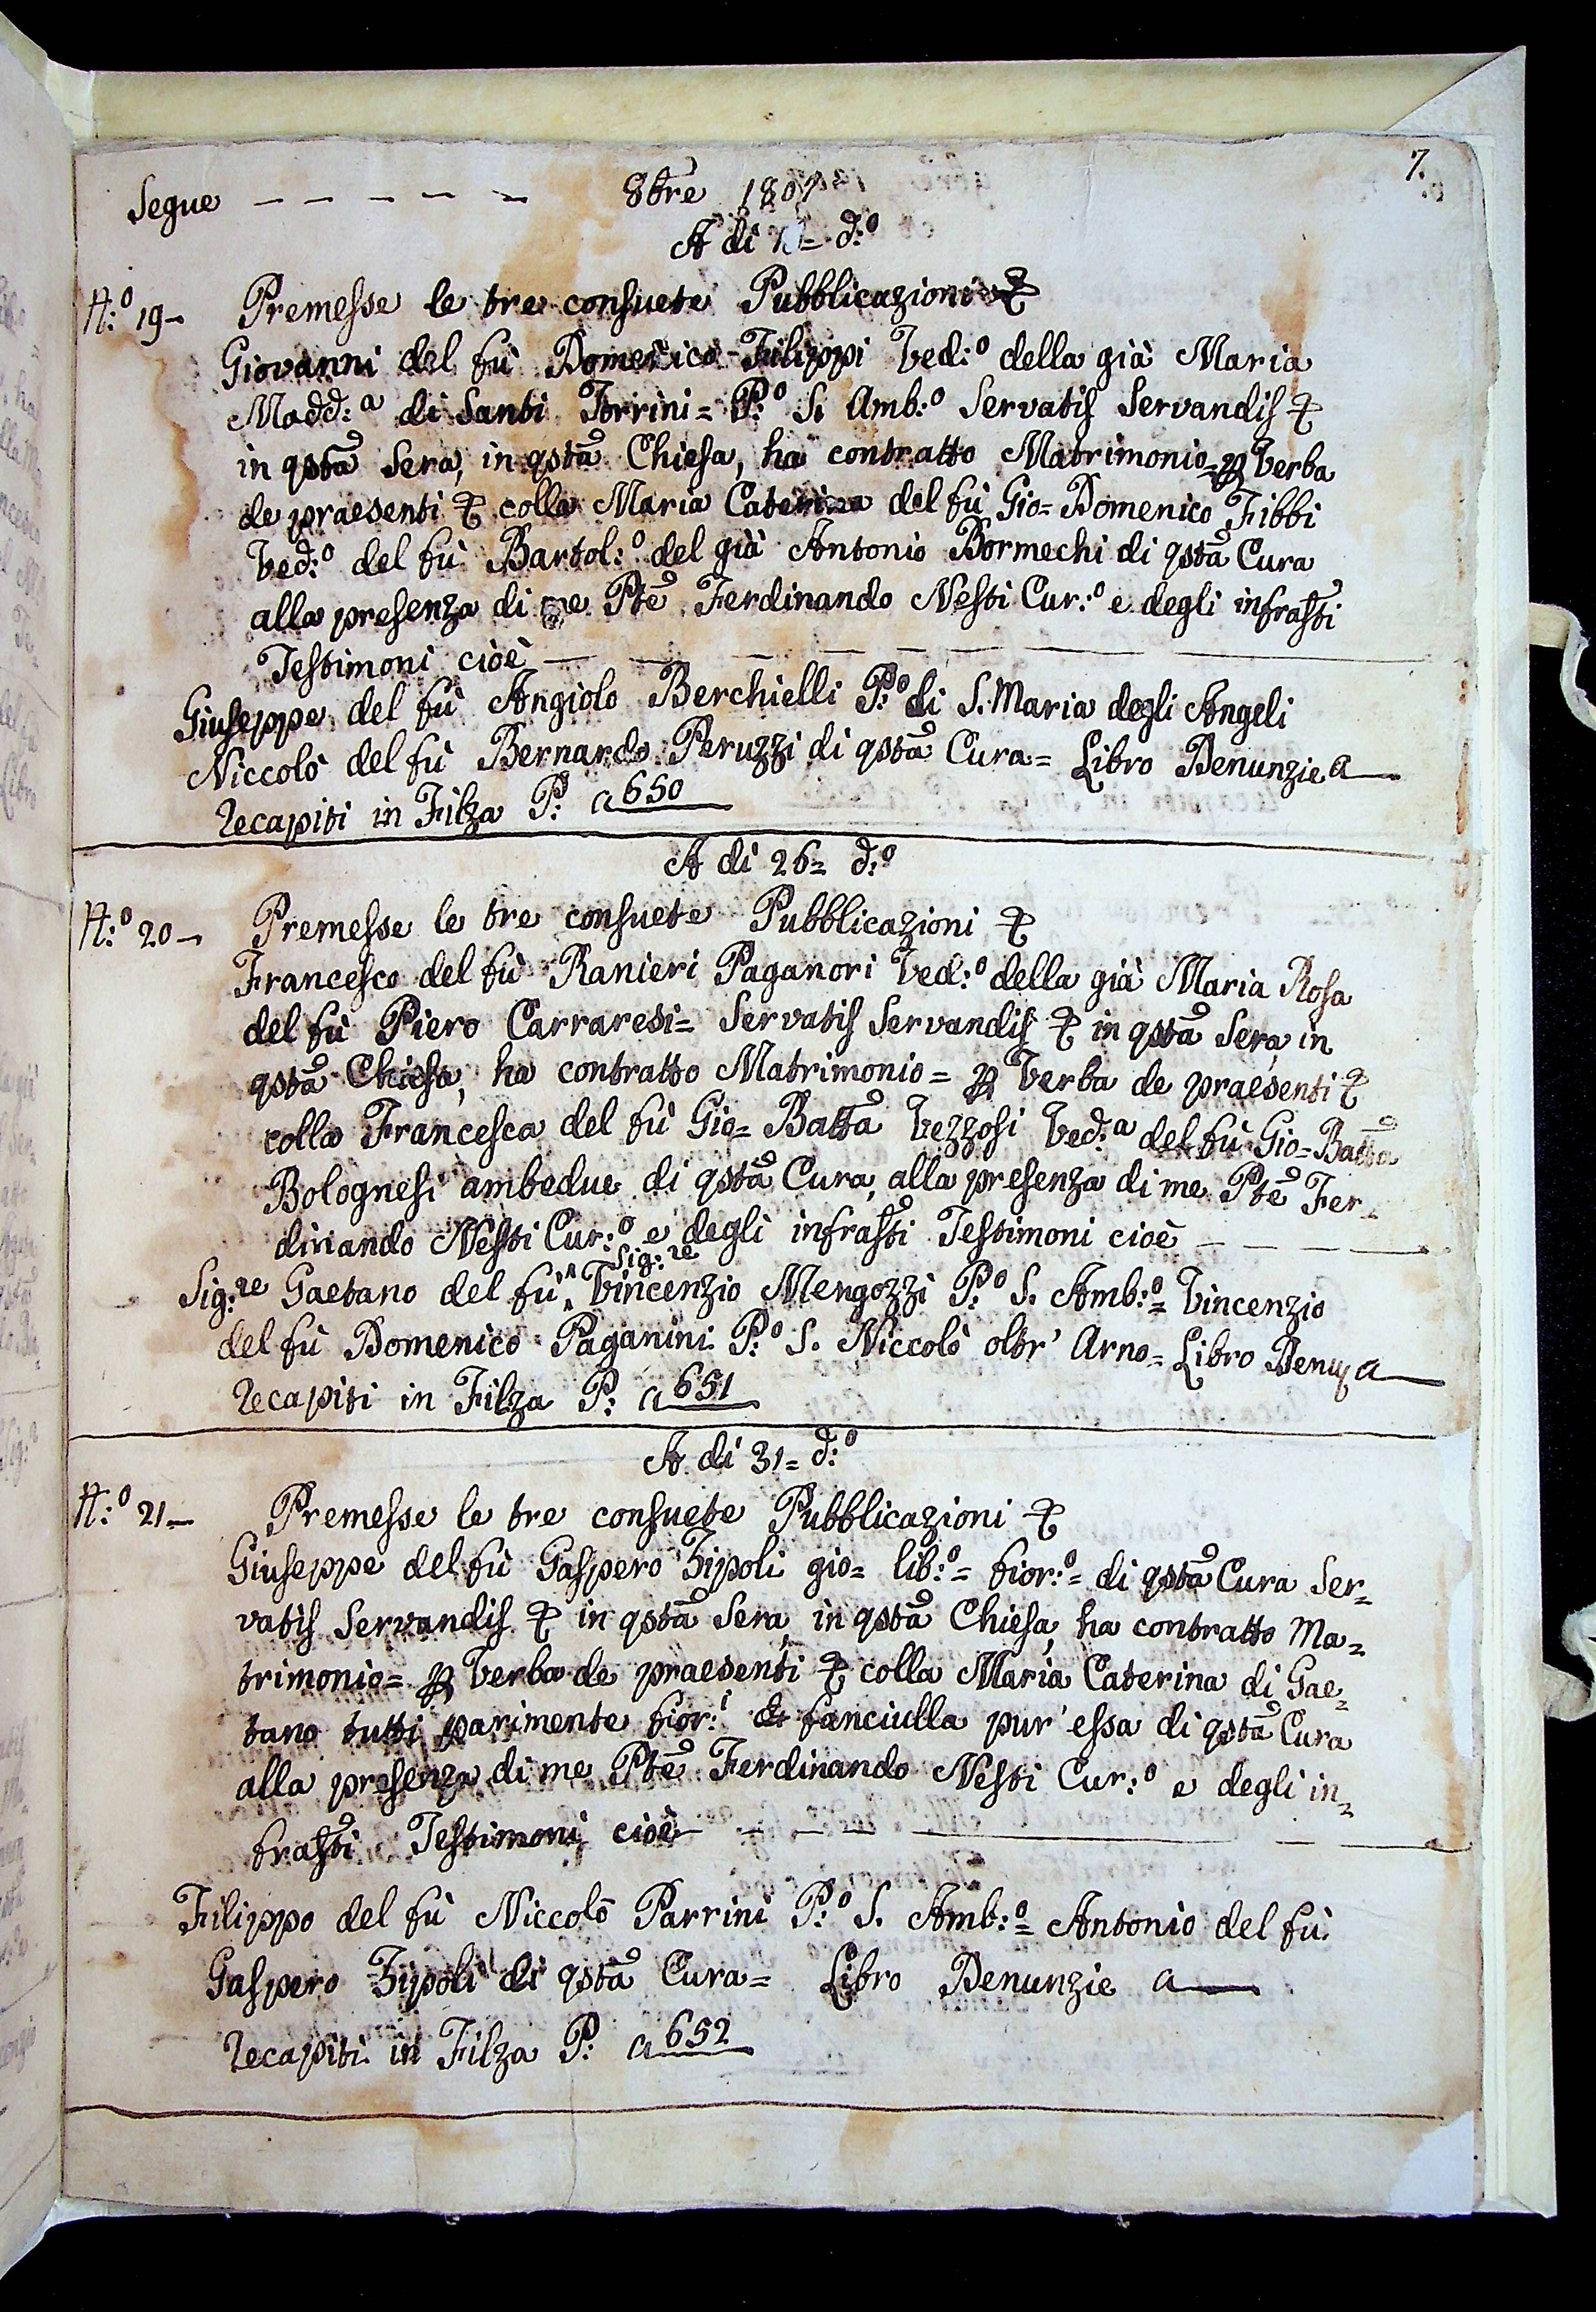 7.
Segue - - - - - 8bre 1807
A di = d:º
N:º 19- Premesse le tre consuete Pubblicazioni &
Giovanni del fù Domenico Filippi Ved:º della già Maria
Madd:ª di Santi Torrini = P:º S. Amb:º Servatis Servandis &
in qstā Sera, in qstā Chiesa, ha contratto Matrimonio = p Verba
de praesenti & colla Maria Caterina del fù Gio= Domenico Fibbi
Ved:º del fù Bartol:º del già Antonio Bormechi di qstā Cura
alla presenza di me Ptē Ferdinando Nesti Cur:º e degli infrasti
Testimoni cioè
Giuseppe del fù Angiolo Berchielli P:º di S. Maria degli Angeli
Niccolò del fù Bernardo Peruzzi di qstā Cura = Libro Denunzie a
Recapiti in Filza P: a 650
A di 26= d:º
N:º 20- Premesse le tre consuete Pubblicazioni &
Francesco del fù Ranieri Paganori Ved:º della già Maria Rosa
del fù Piero Carraresi = Servatis Servandis & in qstā Sera, in
qstā Chiesa, ha contratto Matrimonio = p Verba de praesenti &
colla Francesca del fù Gio= Battā Vezzosi Ved:ª del fù Gio= Battā
Bolognesi ambedue di qstā Cura, alla presenza di me Ptē Fer-
dinando Nesti Cur:º e degli infrasti Testimoni cioè
Sig:re
Sig:re Gaetano del fù Vincenzio Mengozzi P:º S. Amb:º = Vincenzio
del fù Domenico Paganini P:º S. Niccolò oltr' Arno = Libro Denuz a
Recapiti in Filza P: a 651
A di 31= d:º
N:º 21- Premesse le tre consuete Pubblicazioni &
Giuseppe del fù Gaspero Zipoli gio= lib:º = fior:º = di qstā Cura Ser-
vatis Servandis & in qstā Sera, in qstā Chiesa, ha contratto Ma=
trimonio = p Verba de praesenti & colla Maria Caterina di Gae=
tano tutti parimente fior:i fanciulla pur' essa di qstā Cura
alla presenza di me Ptē Ferdinando Nesti Cur:º e degli in=
frasti Testimoni cioè
Filippo del fù Niccolò Parrini P:º S. Amb:º = Antonio del fù
Gaspero Zipoli di qstā Cura = Libro Denunzie a
Recapiti in Filza P: a 652